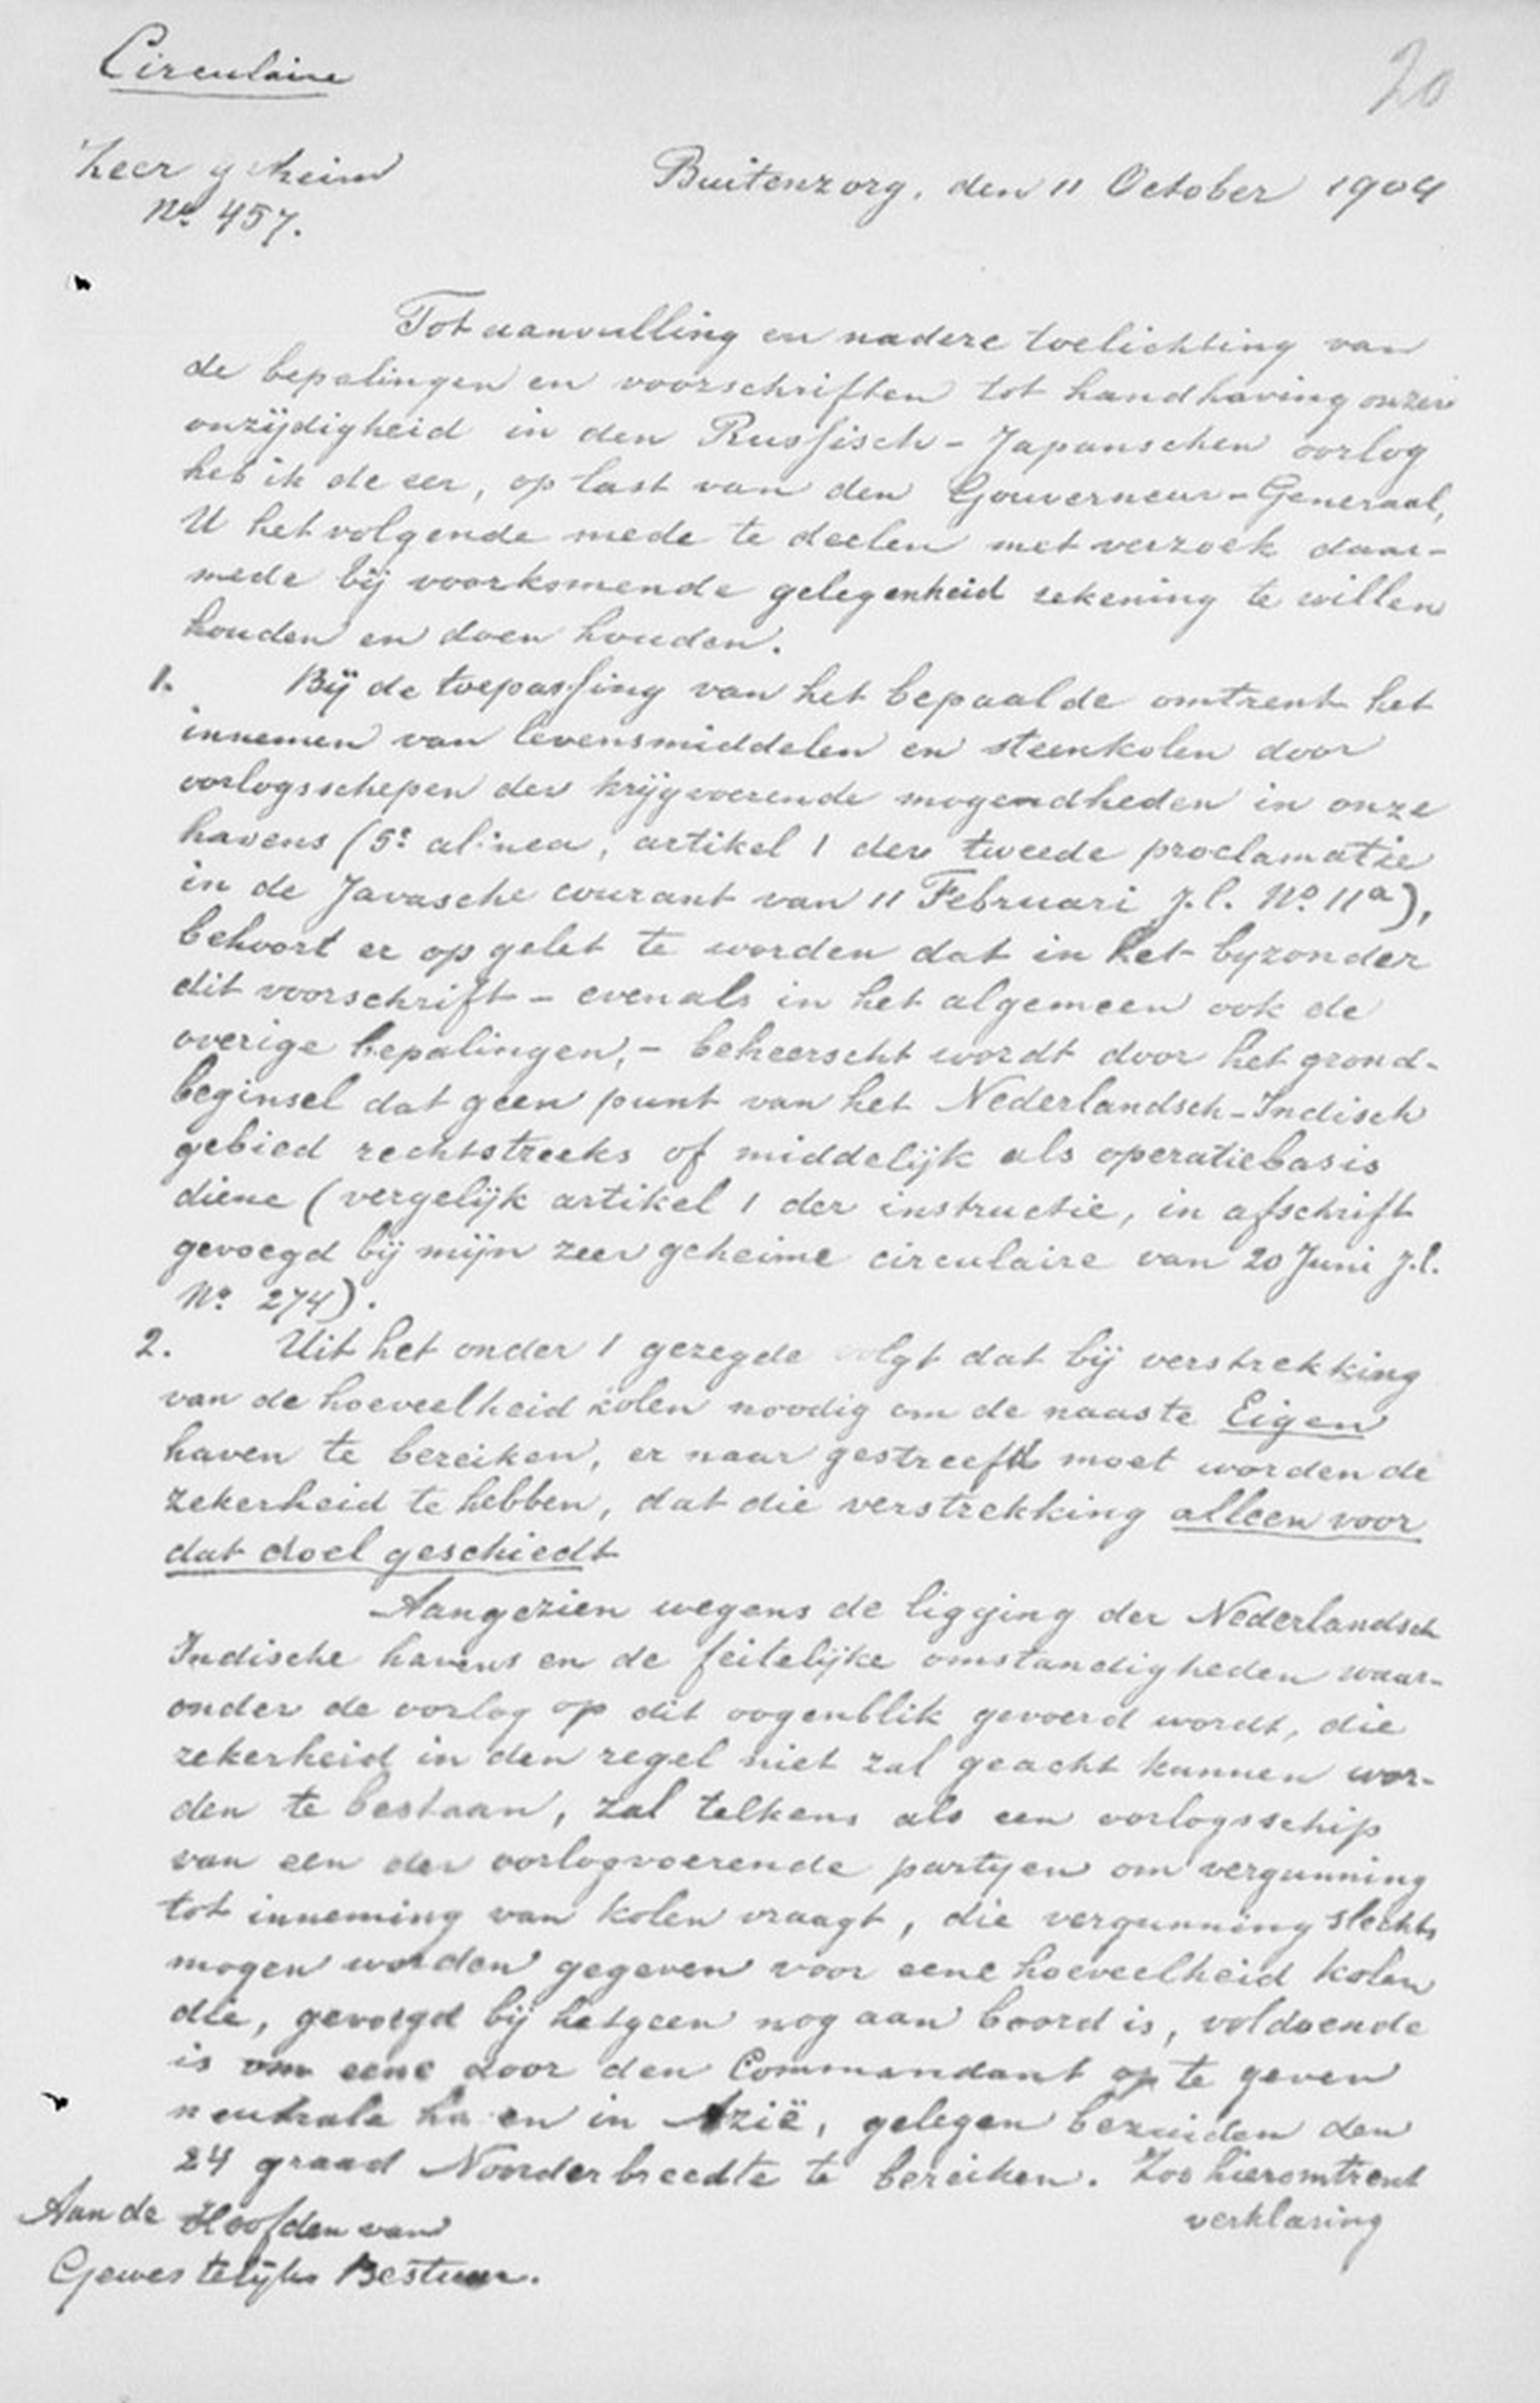 Circulaire
20
Zeer geheim
No. 457.
Buitenzorg, den 11 October 1904
Tot aanvulling en nadere toelichting van
de bepalingen en voorschriften tot handhaving onzer
onzijdigheid in den Russisch-Japanschen oorlog
heb ik de eer, op last van den Gouverneur-Generaal,
U het volgende mede te deelen met verzoek daar-
mede bij voorkomende gelegenheid rekening te willen
houden en doen houden.
1. Bij de toepassing van het bepaalde omtrent het
innemen van levensmiddelen en steenkolen door
oorlogsschepen der krijgvoerende mogendheden in onze
havens (5e alinea, artikel 1 der tweede proclamatie
in de Javasche courant van 11 Februari j.l. No. 11a),
behoort er op gelet te worden dat in het byzonder
dit voorschrift - evenals in het algemeen ook de
overige bepalingen, - beheerscht wordt door het grond-
beginsel dat geen punt van het Nederlandsch-Indisch
gebied rechtstreeks of middelijk als operatiebasis
diene (vergelijk artikel 1 der instructie, in afschrift
gevoegd bij mijn zeer geheime circulaire van 20 Juni j.l.
No. 274).
2. Uit het onder 1 gezegde volgt dat bij verstrekking
van de hoeveelheid kolen noodig om de naaste Eigen
haven te bereiken, er naar gestreefd moet worden de
zekerheid te hebben, dat die verstrekking alleen voor
dat doel geschiedt
Aangezien wegens de ligging der Nederlandsch
Indische havens en de feitelijke omstandigheden waar-
onder de oorlog op dit oogenblik gevoerd wordt, die
zekerheid in den regel niet zal geacht kunnen wor-
den te bestaan, zal telkens als een oorlogsschip
van een der oorlogvoerende partyen om vergunning
tot inneming van kolen vraagt, die vergunning slechts
mogen worden gegeven voor eene hoeveelheid kolen
die, gevoegd bij hetgeen nog aan boord is, voldoende
is om eene door den Commandant op te geven
neutrale haven in Azië, gelegen bezuiden den
24 graad Noorderbreedte te bereiken. Zoo hieromtrent
verklaring
Aan de Hoofden van
Gewestelijk Bestuur.